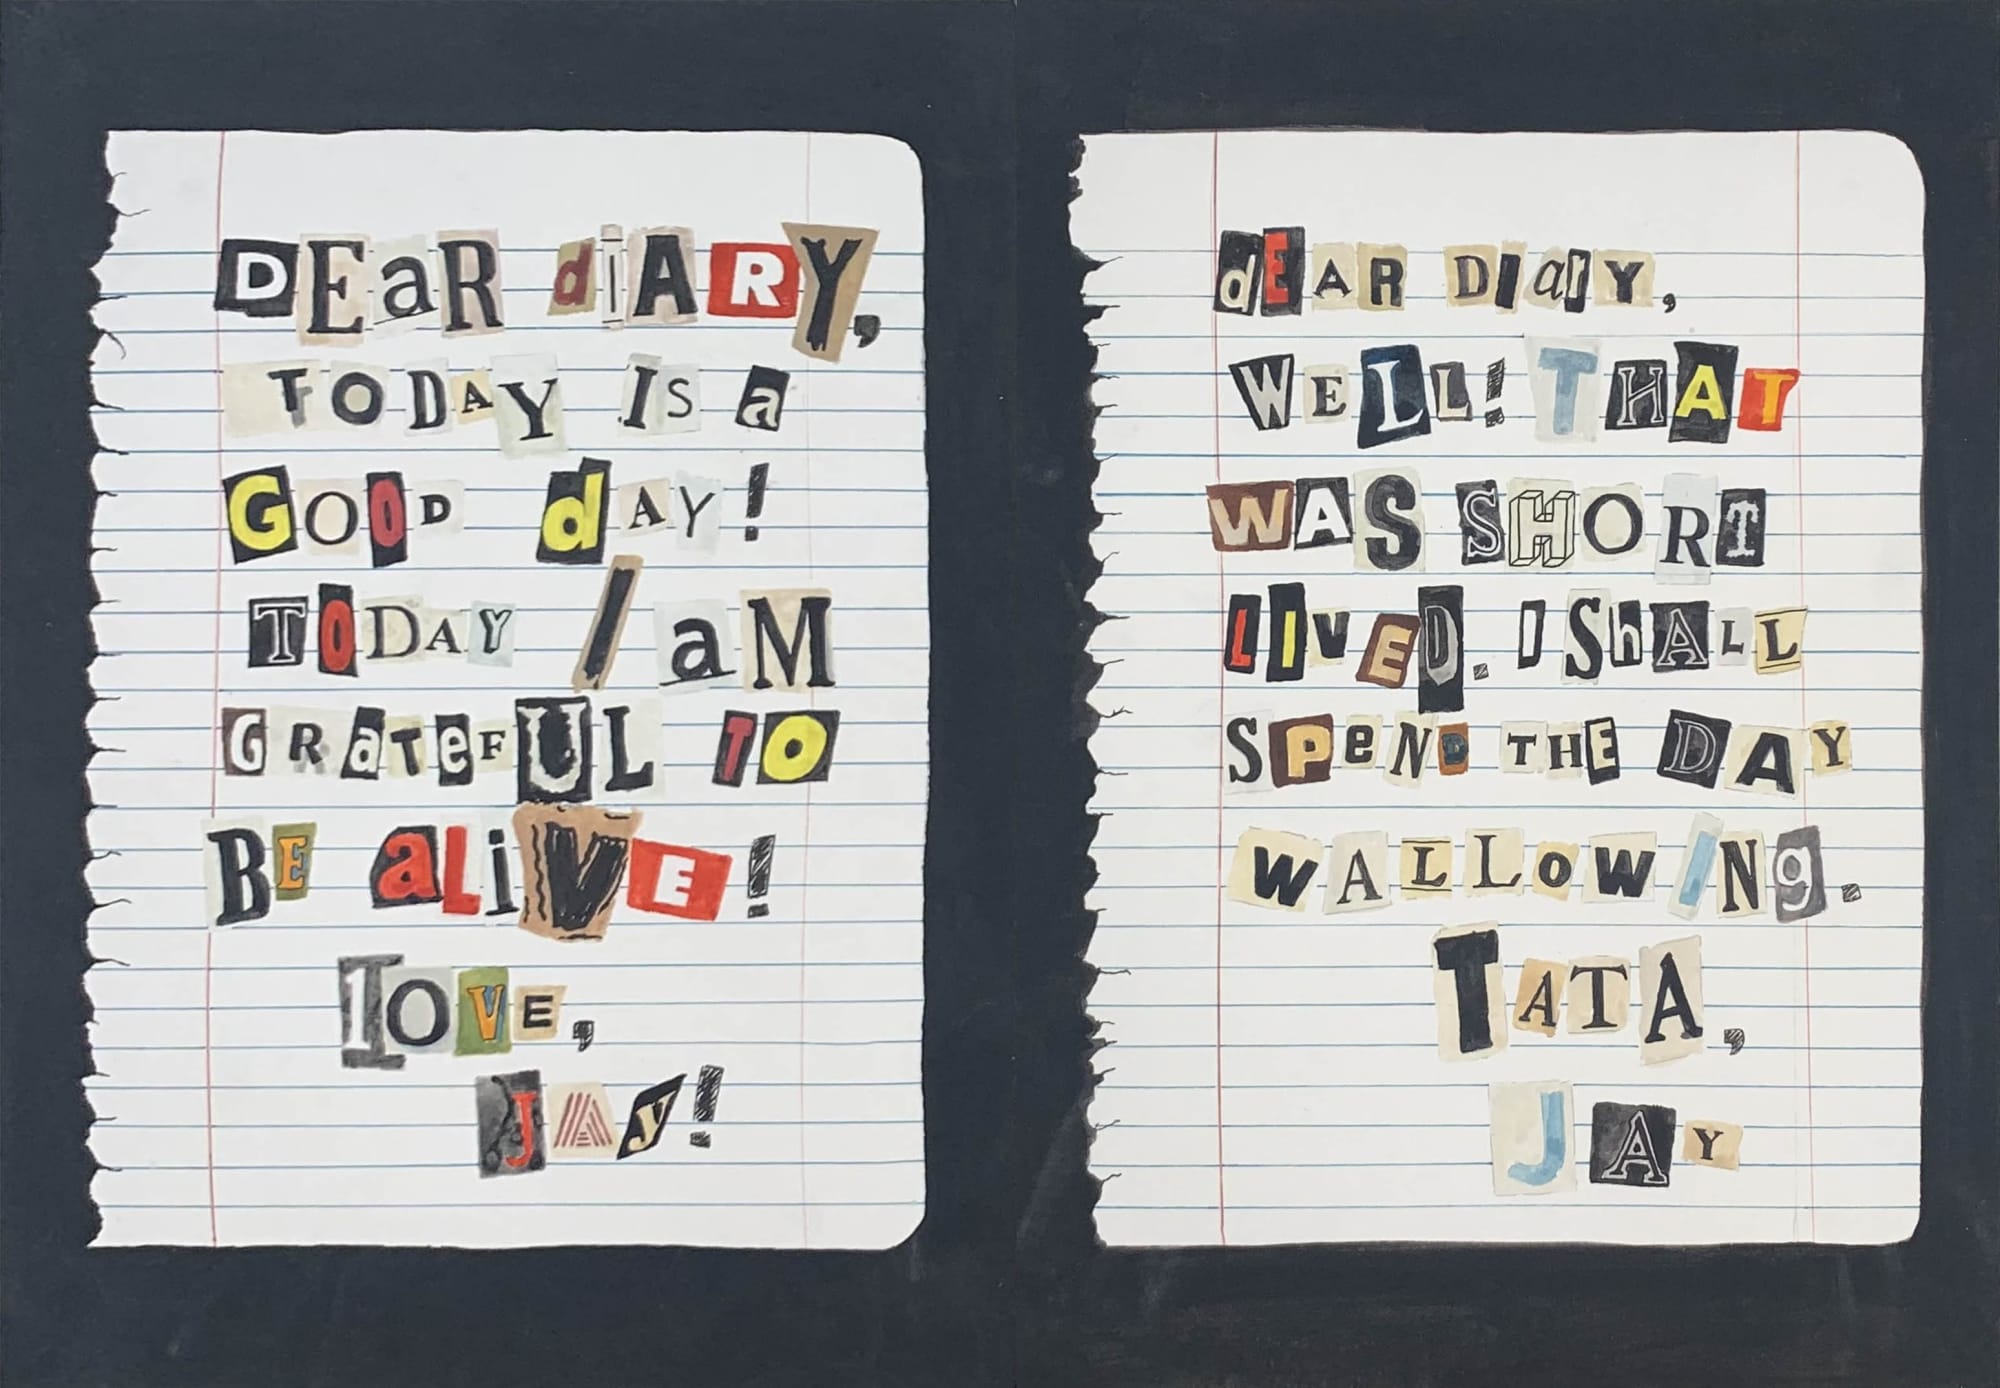 DEaR diARY,
TODAY IS a
GOOD dAY!
TODAY I aM
GRateFUL TO
BE aLiVE!
lOVE,
JAy!
dEAR DIarY,
WELL! THAT
WAS SHORT
LIVED. I ShALL
SPeND THE DAY
WALLOWINg.
TATA,
JAY